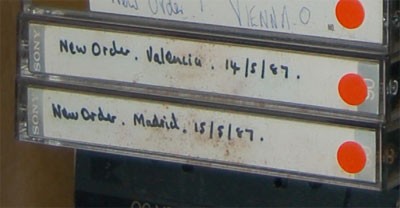 New Order VIENNA.O
SONY
New Order. Valencia. 14/5/87.
90
SONY
New Order. Madrid. 15/5/87.